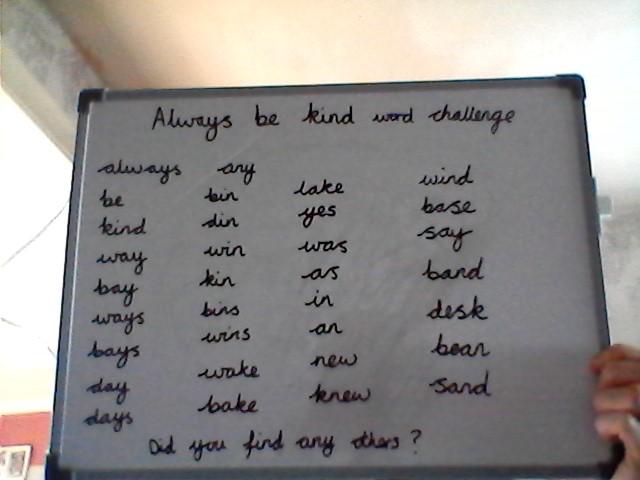 Always be kind word challenge
always
be
kind
way
bay
ways
bays
day
days
any
bin
din
win
kin
bins
wins
wake
bake
lake
yes
was
as
in
an
new
knew
wind
base
say
band
desk
bean
sand
Did you find any others?